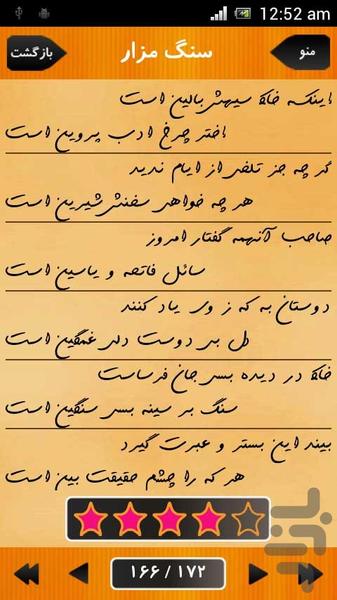 12:52 am
منو
سنگ مزار
بازگشت
اینکه خاک سیهش بالین است
اختر چرخ ادب پروین است
گر چه جز تلخی از ایام ندید
هر چه خواهی سخنش شیرین است
صاحب آنهمه گفتار امروز
سائل فاتحه و یاسین است
دوستان به که ز وی یاد کنند
دل بی دوست دلی غمگین است
خاک در دیده بسی جان فرساست
سنگ بر سینه بسی سنگین است
بیند این بستر و عبرت گیرد
هر که را چشم حقیقت بین است
۱۶۶ / ۱۷۲
بازار